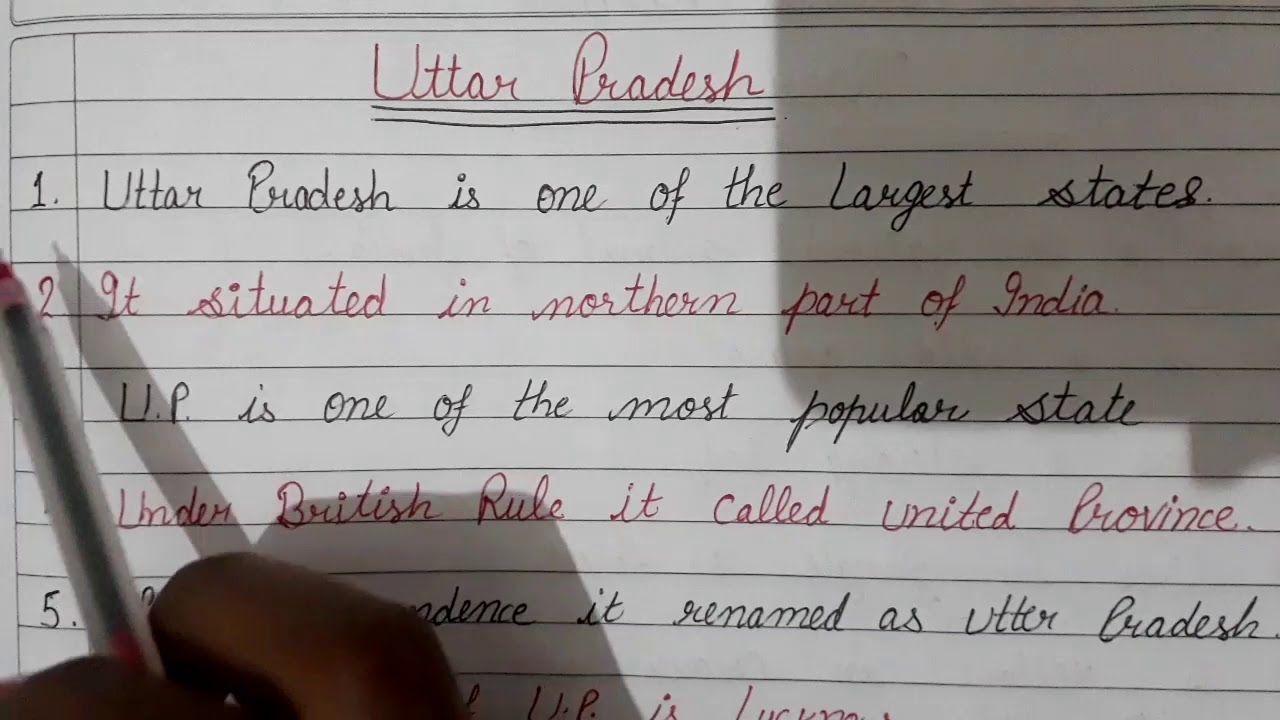 Uttar Pradesh
1. Uttar Pradesh is one of the largest states.
2 It situated in northern part of India.
U.P. is one of the most popular state
Under British Rule it called united Province.
5. it renamed as Utter Pradesh.
U.P. is